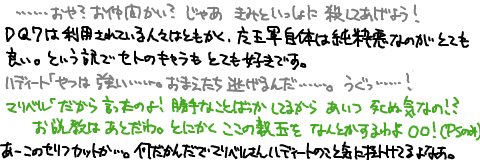 ……おや?お仲間かい?じゃあ きみもいっしょに 殺してあげよう!
DQ7は利用されている人々はともかく、魔王軍自体は純粋悪なのがとても
良い。という訳でセトのキャラも とても好きです。
ハディート「やつは 強い……。おまえたち 逃げるんだ……。うぐっ……!
マリベル「だから 言ったのよ! 勝手なことばっかしてるから あいつ 死ぬ気なの!?
お説教は あとだわ。とにかく ここの敵を なんとかするわよ ○○! (PSのみ)
あーこのセリフカットか…。何だかんだでマリベルさんハディートのこと気に掛けてるよなあ。